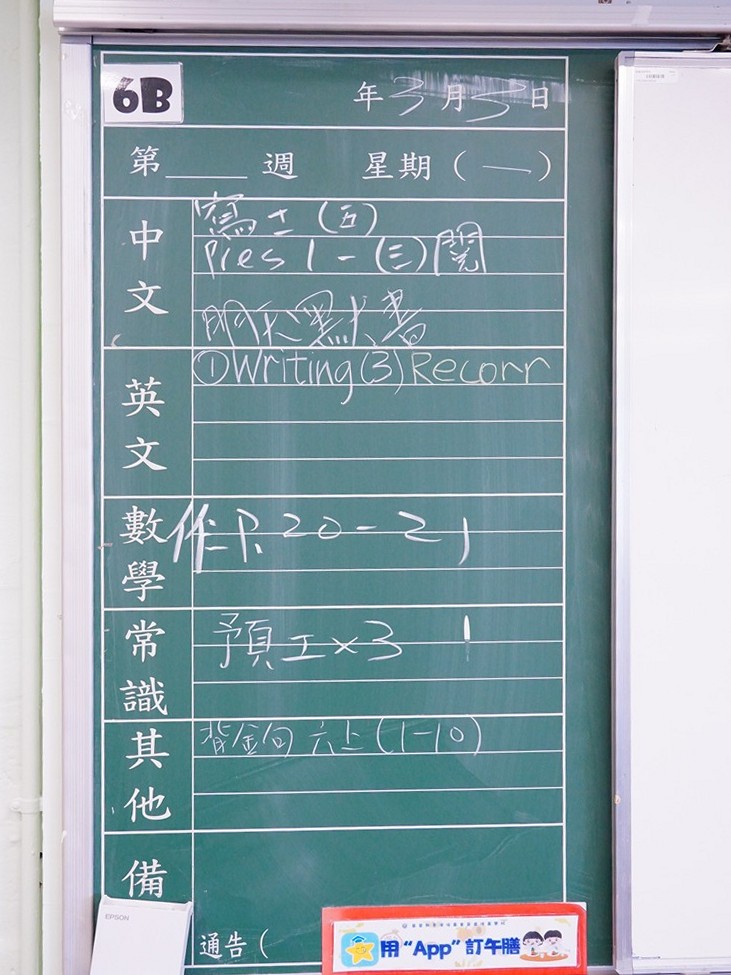 6B
年 3 月 5 日
第____週 星期（一）
中文
寫士（五）
Pres 1 - (三) 閱
明天默書
英文
①Writing(3) Recorr
數學
作P. 20 - 21
常識
預工×3
其他
背金句 六上(1-10)
備
通告（
EPSON
用“App”訂午膳